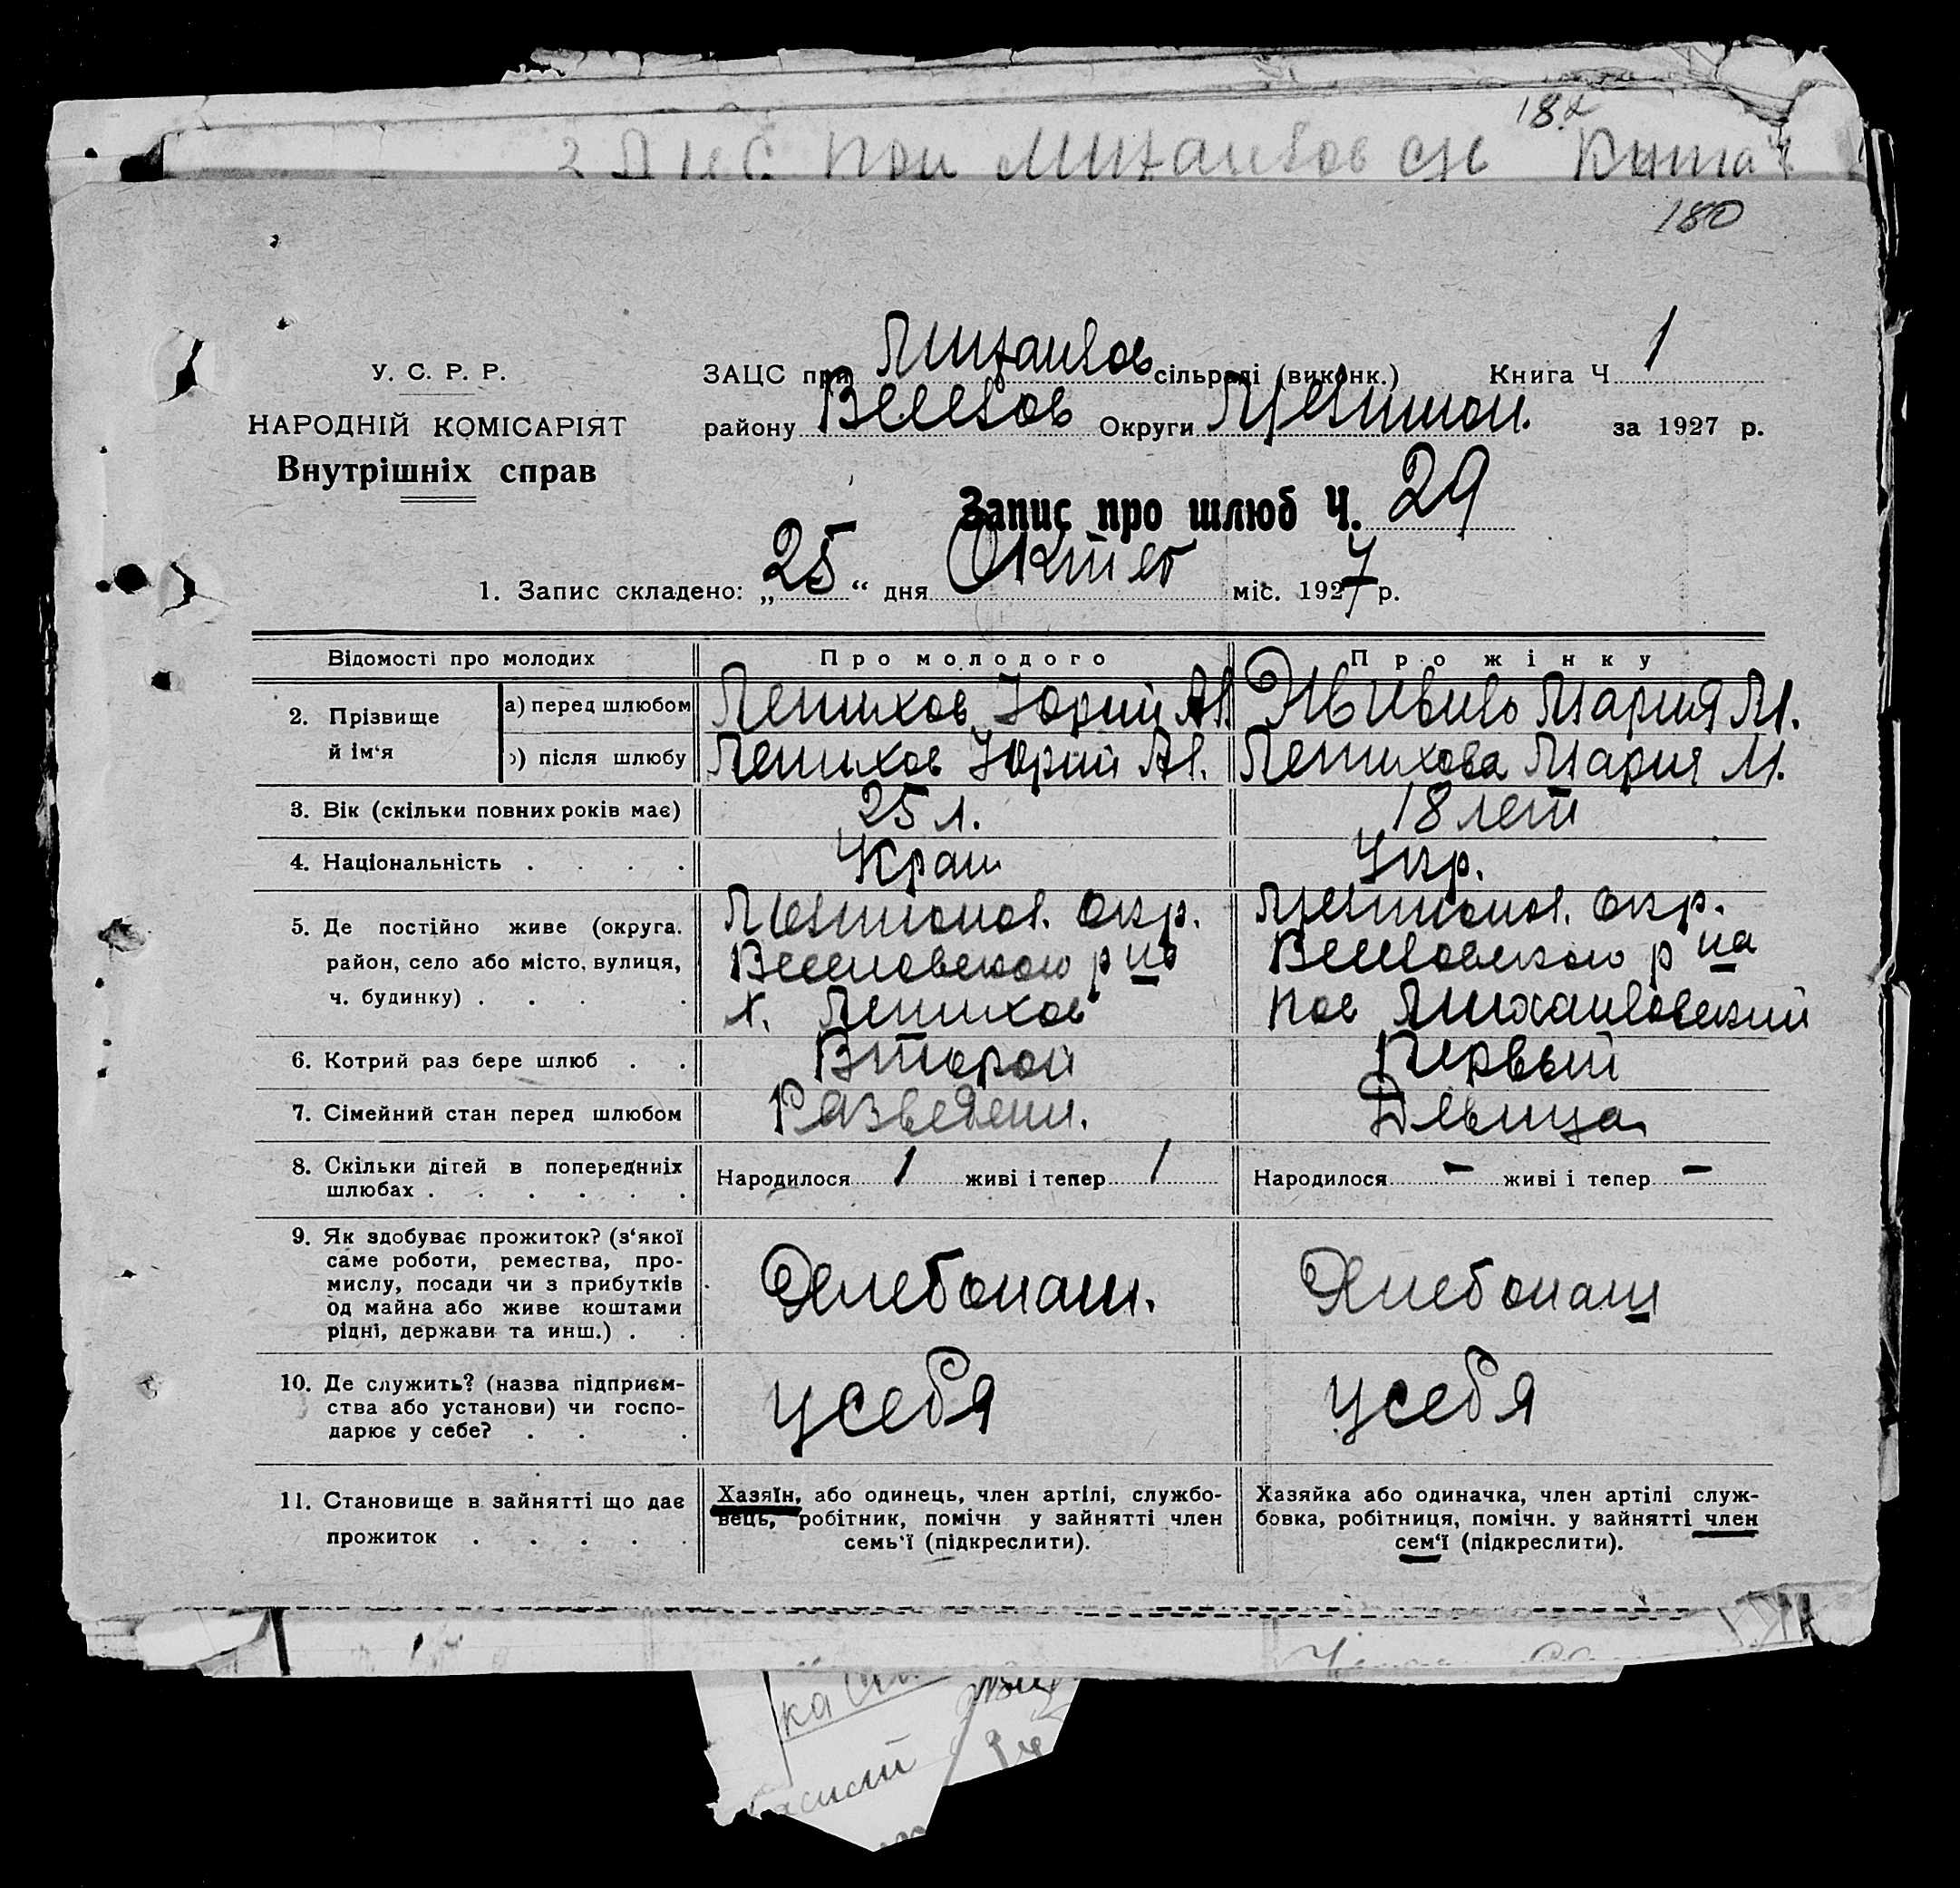 182
180
У. С. Р. Р.
НАРОДНІЙ КОМІСАРІЯТ
Внутрішніх справ
ЗАЦС при Михайлов сільраді (виконк.) Книга Ч 1
району Округи за 1927 р.
Запис про шлюб Ч. 29
1. Запис складено: „25“ дня Октяб міс. 1927 р.
Відомості про молодих Про молодого Про жінку
2. Прізвище й ім‘я
а) перед шлюбом Лепихов Юрий Мария М.
б) після шлюбу Лепихов Юрий Лепихова Мария М.
3. Вік (скільки повних років має) 25 л. 18 лет
4. Національність . . . . Украи Укр.
5. Де постійно живе (округа. окр. окр.
район, село або місто, вулиця, р на р на
ч. будинку) . . . . х. Лепихов пос Михайловский
6. Котрий раз бере шлюб . . Второй Первый
7. Сімейний стан перед шлюбом Разведен. Девица
8. Скільки дітей в попередніх Народилося 1 живі і тепер 1 Народилося - живі і тепер -
шлюбах . . . . . .
9. Як здобуває прожиток? (з‘якої
саме роботи, ремества, про-
мислу, посади чи з прибутків
од майна або живе коштами
рідні, держави та инш.) . . Хлебопаш. Хлебопаш
10. Де служить? (назва підприєм-
ства або установи) чи госпо-
дарює у себе? . . . у себя у себя
11. Становище в зайнятті що дає
прожиток . . . . .
Хазяїн, або одинець, член артілі, службо-
вець, робітник, помічн у зайнятті член
семь‘ї (підкреслити).
Хазяйка або одиначка, член артілі служ-
бовка, робітниця, помічн. у зайнятті член
сем‘ї (підкреслити).